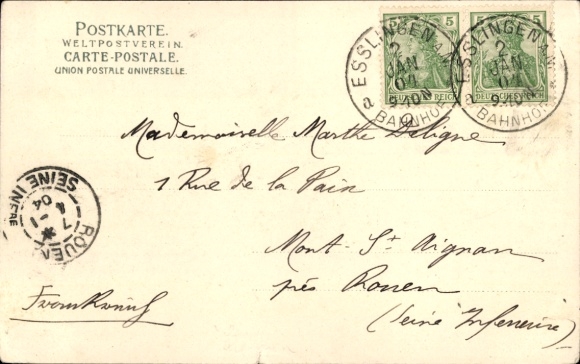 POSTKARTE.
WELTPOSTVEREIN.
CARTE-POSTALE.
UNION POSTALE UNIVERSELLE.
5 5 5
DEUTSCHES REICH DEUTSCHES REICH
ESSLINGEN A.N.
2
JAN
04
9-10N
a BAHNHOF
ESSLINGEN A.N.
2
JAN
04
9-10N
a BAHNHOF
Mademoiselle Marthe Deligne
1 Rue de la Paix
Mont-St Aignan
près Rouen
(Seine Inferieure)
Frankreich
ROUEN
7-1
4
04
SEINE INFRE